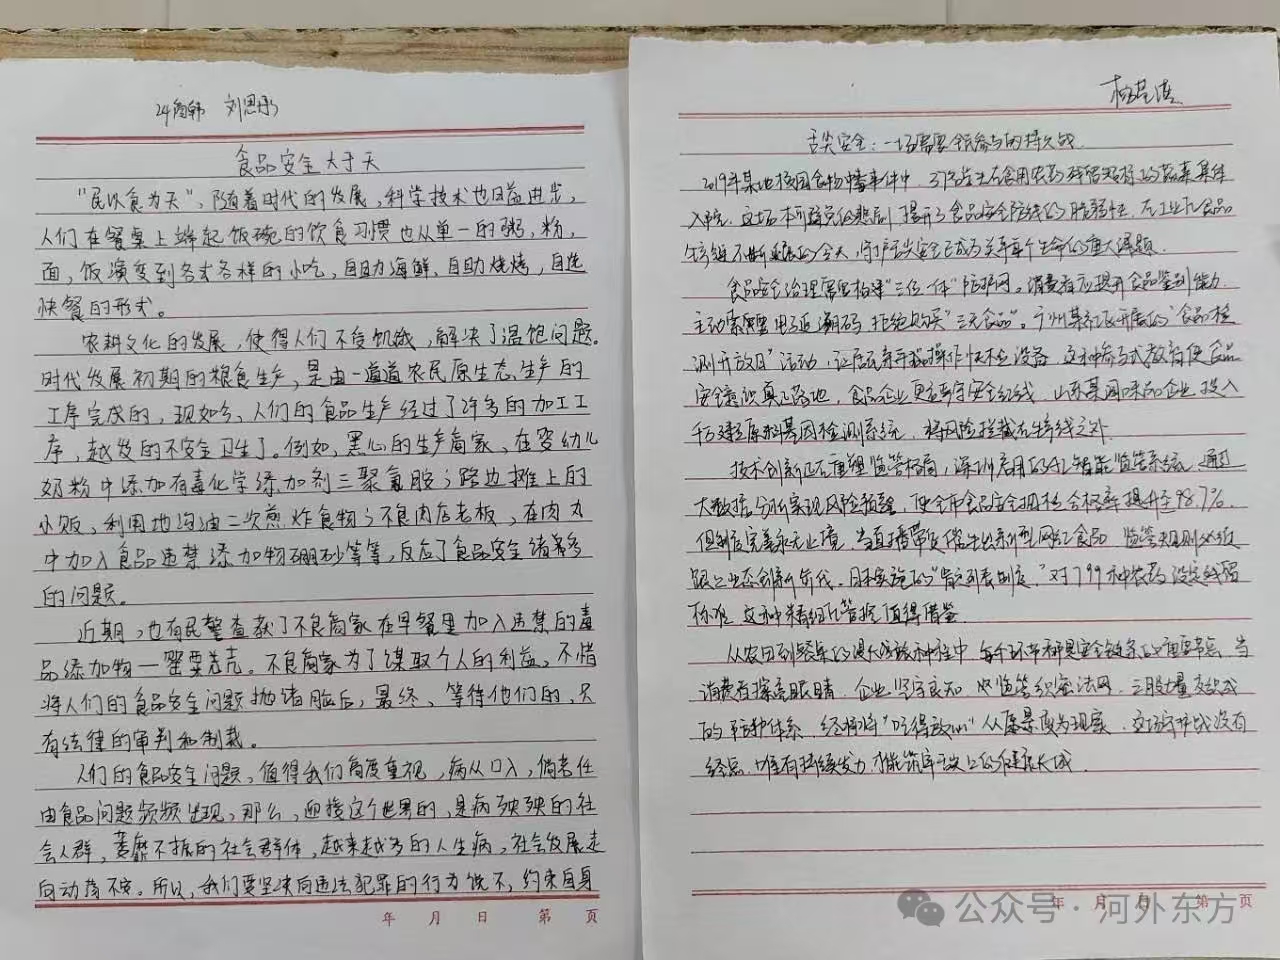 24商韩 刘思彤
食品安全大于天
"民以食为天"，随着时代的发展，科学技术也日益进步，
人们在餐桌上端起饭碗的饮食习惯也从单一的粥，粉，
面，饭演变到各式各样的小吃，自助海鲜，自助烧烤，自选
快餐的形式。
农耕文化的发展，使得人们不受饥饿，解决了温饱问题。
时代发展初期的粮食生产，是由一道道农民原生态生产的
工序完成的，现如今，人们的食品生产经过了许多的加工工
序，越发的不安全卫生了。例如，黑心的生产商家，在婴幼儿
奶粉中添加有毒化学添加剂三聚氰胺；路边摊上的
小贩，利用地沟油二次煎炸食物；不良肉店老板，在肉丸
中加入食品违禁添加物硼砂等等，反应了食品安全诸多
的问题。
近期，也有民警查获了不良商家在早餐里加入违禁的毒
品添加物—罂粟壳。不良商家为了谋取个人的利益，不惜
将人们的食品安全问题抛诸脑后，最终，等待他们的，只
有法律的审判和制裁。
人们的食品安全问题，值得我们高度重视，病从口入，倘若任
由食品问题频频出现，那么，迎接这个世界的，是病殃殃的社
会人群，萎靡不振的社会群体，越来越多的人生病，社会发展走
向动荡不安。所以，我们要坚决向违法犯罪的行为说不，约束自身
年 月 日 第 页
舌尖安全：一场需要全民参与的持久战
2019年某地校园食物中毒事件中，37名学生在食用农药残留超标的蔬菜集体
入院，这场本可避免的悲剧，揭开了食品安全防线的脆弱性，在工业化食品
生产链不断延展的今天，守护舌尖安全已成为关乎每个生命的重大课题。
食品安全治理需要构建"三位一体"防护网。消费者应提升食品鉴别能力，
主动索要电子追溯码，拒绝购买"三无食品"。广州某社区开展的"食品检
测开放日"活动，让居民亲手操作快检设备，这种参与式教育使食品
安全意识真正落地，食品企业更要严守安全红线，山东某调味品企业，投入
千万建立原料基因检测系统，将风险拦截在生产线之外。
技术创新正在重塑监管格局，深圳启用的AI智能监管系统，通过
大数据分析实现风险预警，使全市食品安全抽检合格率提升至98.7%。
但制度完善永无止境，当直播带货催生出新型网红食品，监管规则必须
跟上业态创新步伐。日本实施的"肯定列表制度"对799种农药设定残留
标准，这种精细化管控值得借鉴。
从农田到餐桌的漫长旅程中，每个环节都是安全链条的重要节点，当
消费者擦亮眼睛，企业坚守良知，监管织密法网，三股力量交织成
的防护体系，终将将"吃得放心"从愿景变为现实，这场守护战没有
终点，唯有持续发力，才能筑牢舌尖上的健康长城。
年 月 日 第 页
公众号·河外东方